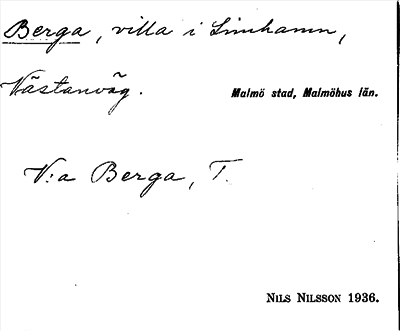 Berga, villa i Limhamn,
Västanväg. Malmö stad, Malmöhus län.
V:a Berga, T.
NILS NILSSON 1936.